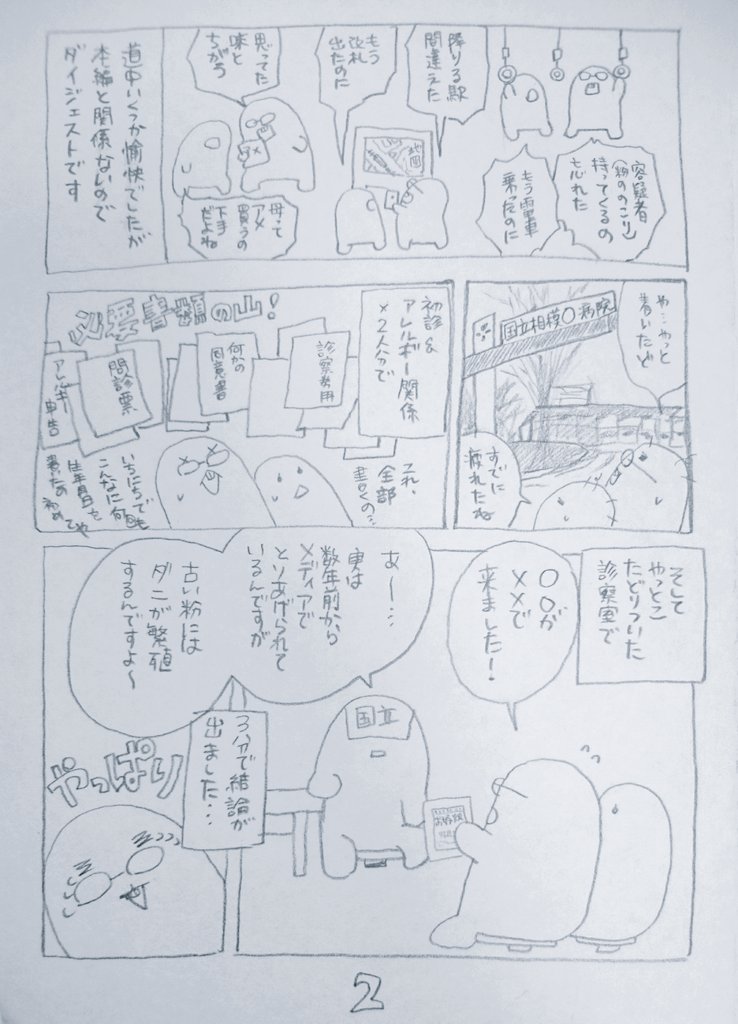 容疑者
(粉ののこり)
持ってくるの
忘れた
もう電車
乗ったのに
降りる駅
間違えた
地図
もう
改札
出たのに
思ってた
味と
ちがう
母って
アメ
買うの
下手
だよね
道中いくつか愉快でしたが、
本編と関係ないので
ダイジェストです
や…やっと
着いたど
国立相模〇病院
すでに
疲れたね
初診&
アレルギー関係
×2人分で
必要書類の山!
診察券用
何かの
同意書
問診票
アレルギー
申告
これ、
全部
書くの…
いちにちで
こんなに何回も
生年月日を
書いたの初めてや
そして
やっとこ
たどりついた
診察室で
〇〇が
××で
来ました!
あー…
実は
数年前から
メディアで
とりあげられて
いるんですが
古い粉には
ダニが繁殖
するんですよ〜
国立
3分で結論が
出ました…
やっぱり
2